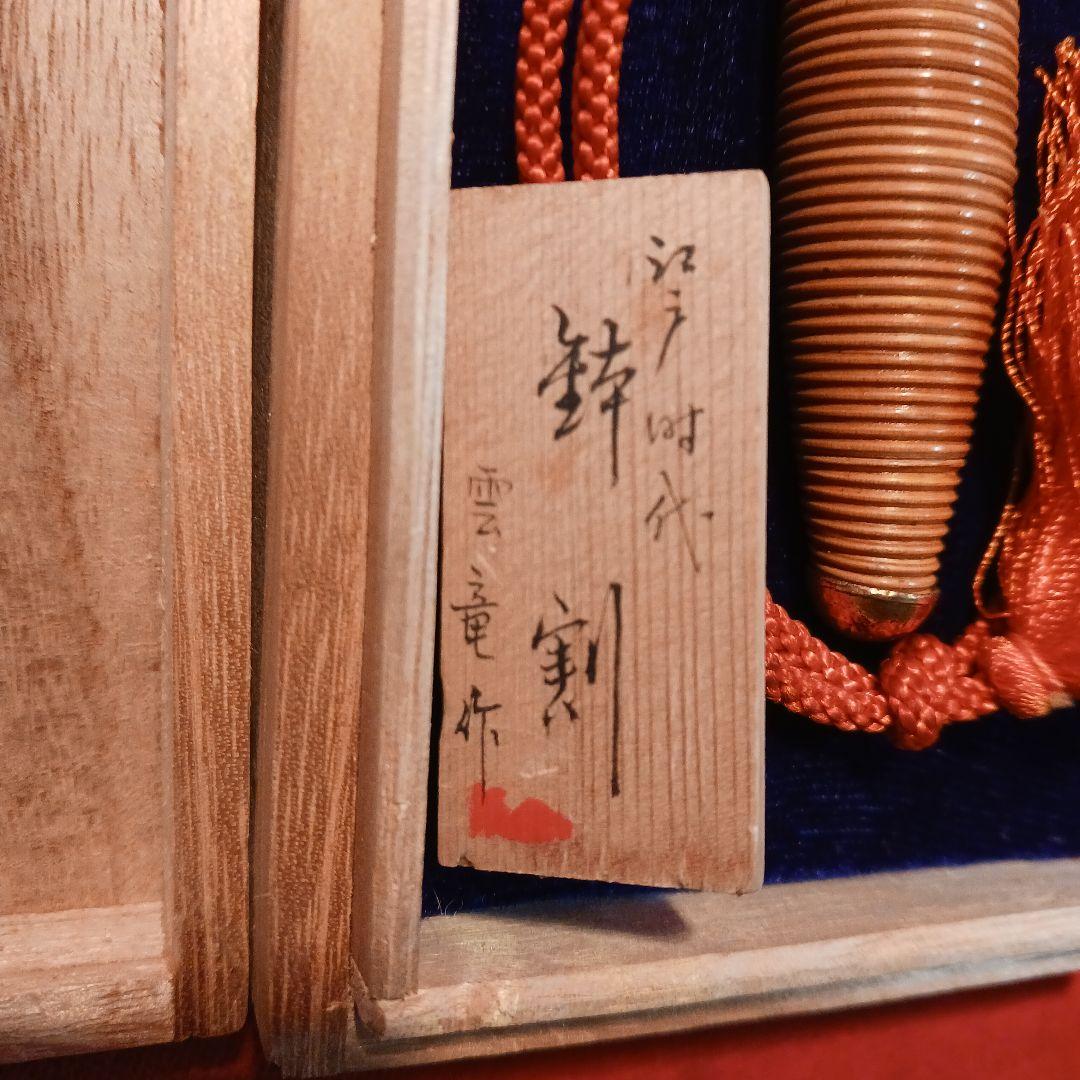 江戸時代
鉢割
雲竜作